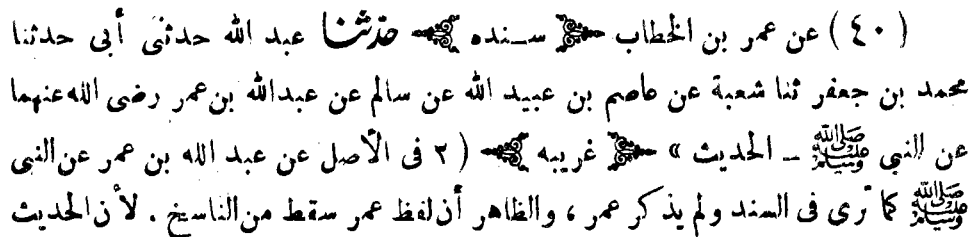 ( ٤٠ ) عن عمر بن الخطاب ﴿ سنده ﴾ حدثنا عبد الله حدثنى أبى حدثنا
محمد بن جعفر ثنا شعبة عن عاصم بن عبيد الله عن سالم عن عبدالله بن عمر رضى الله عنهما
عن النبي ﷺ - الحديث » ﴿ غريبه ﴾ ( ٢ فى الأصل عن عبد الله بن عمر عن النبى
ﷺ كما ترى فى السند ولم يذكر عمر ، والظاهر أن لفظ عمر سقط من الناسخ . لأن الحديث